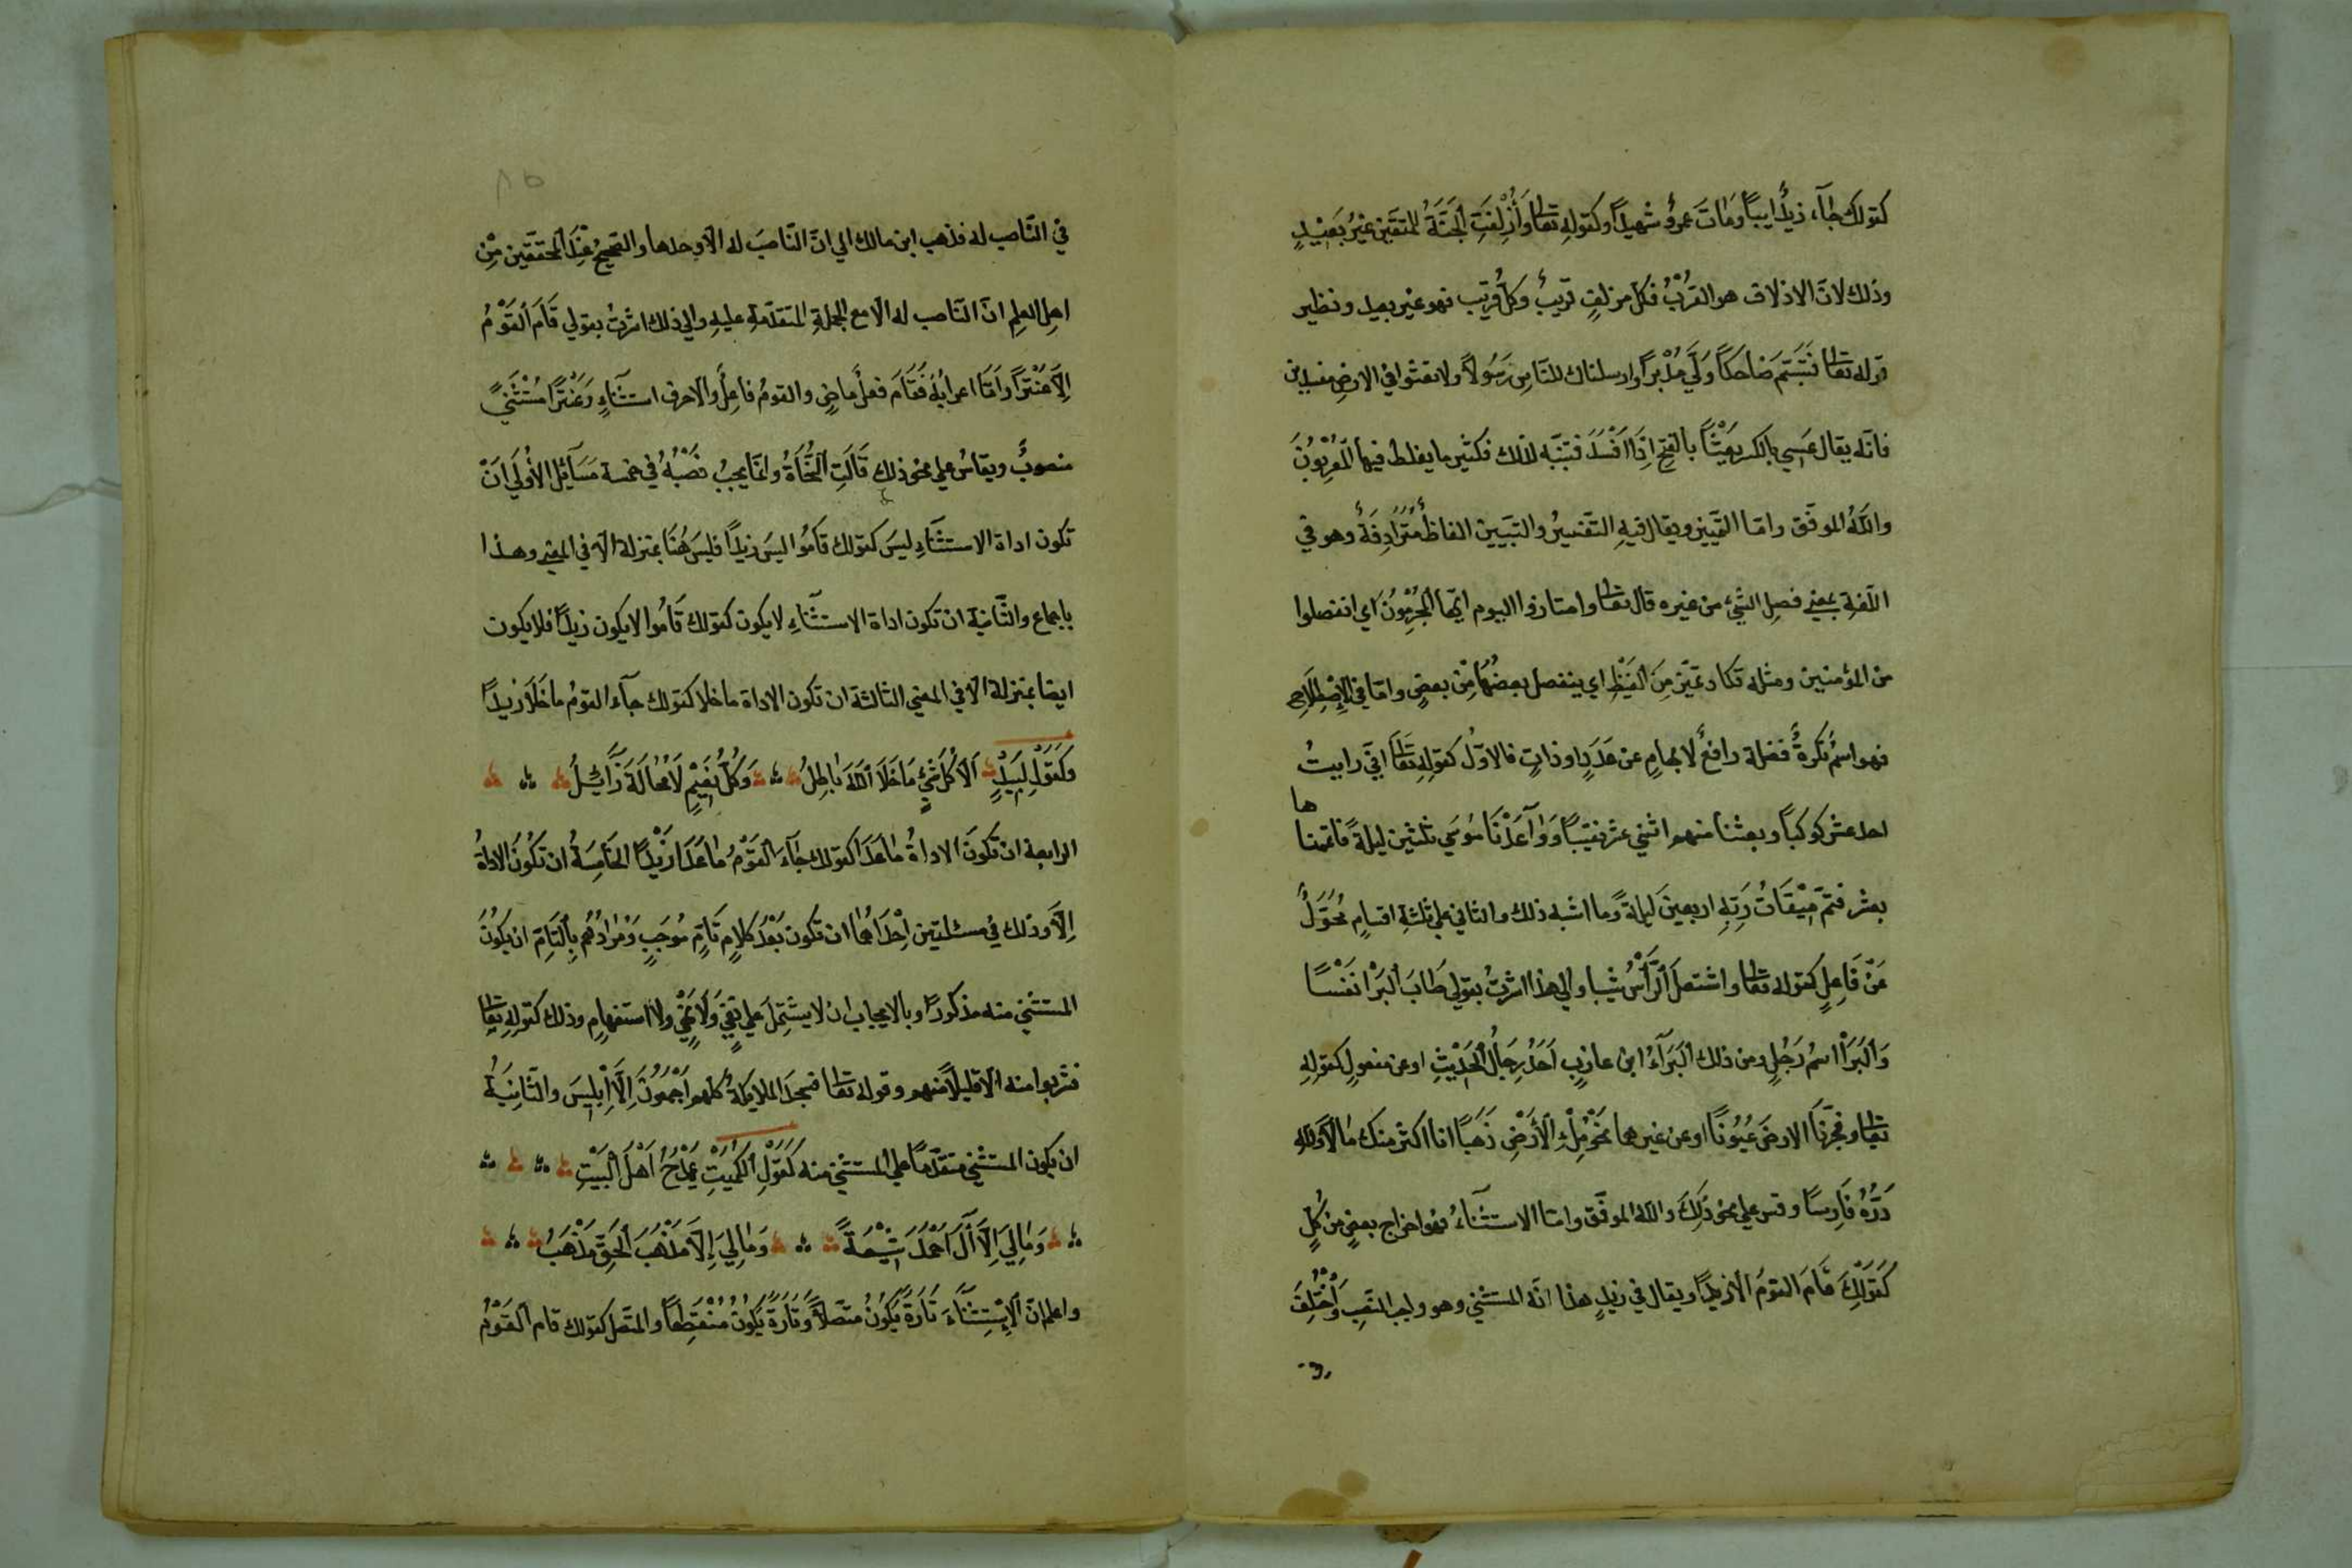 كقولك جٰآء زيدٌ ابيباً ومٰاتَ عمروٌ شهيداً وكقولهِ تعالٰى وَاُزْلِفَتِ اَلْجَنَّةُ للمتّقين غيرُ بَعِيْدٍ
وذلك لانّ الازلاف هو القربُ فكل مزلفٍ قريبٌ وكلّ قريب فهو غير بعيد ونظير
قوله تعالٰى فَتَبَسَّمَ ضٰاحَكاً وَلَّي مُدْبِرًا وارسلناك للنّاسِ رَسُولاً ولا تعثوا في الارضِ مفسدين
فانّه يقال عَسِي بالكسر يَعْثٰا بالفتح اِذَا اَفْسَدَ فتنبّه لذلك فكثير ما يغلط فيها المُعْرِبُونَ
واللّهُ الموفّق وامّا التّمييز ويقال فيهِ التّفسيرُ والتبيين الفاظٌ مُتَرٰادِفَةٌ وهو في
اللّغةِ بمعني فصلِ الشّيءِ من غيره قال تعالٰى وامتازوا اليوم ايّها اَلْمُجْرِمُونَ اي انفصلوا
من المؤمنين ومثله تكاد تميّز مِنَ اَلْغَيْظِ اي ينفصل بعضُهٰا مِنْ بعضٍ وامّا في الاِصْطِلاٰحِ
فهو اسمٌ نكرةٌ فضلة رافعٌ لابهامٍ عن عَدَدٍ او ذاتٍ فالاوّلُ كقولِهِ تعَالٰى انّي رايتُ
احد عشر كوكباً وبعثنا منهم اثني عشر نقيبًا وَوٰاعَدْنٰا مُوسَي ثلثين ليلةً فاتممنا ها
بعشر فتمّ مِيْقٰاتُ رَبِّهِ اربعينَ ليلةً وما اشبه ذلك والثاني علي ثلثةِ اقسامٍ مُحَوَّلٌ
عَنْ فَاعِلٍ كقوله تعالٰى واشتعلَ اَلرَّأْسُ شيبا والي هذا اشرتُ بقولي طَابَ اَلْبَرْا نَفْسًا
وَاَلْبَرَاْ اسمُ رَجُلٍ ومن ذلك اَلْبَرَآءُ ابن عازبٍ اَحَدُ رِجٰالُ الْحَدِيْثِ او عن مفعولٍ كقولِهِ
تعالٰى وفجّرنَا الارضَ عُيُونًا او عن غيرهما نحو مِلْءِ الأَرْضِ ذَهَبًا انا اكثر منك مٰالاً وللّهِ
دَرُّهُ فَارِسًا وقس علي نحو ذلِكَ واللّه الموفّق وامّا الاستثنآءُ فهو اخراج بعضٍ من كُلٍّ
كَقَوْلِكَ قَامَ القومُ الّا زيدًا ويقال في زيدٍ هذا انّه المستثني وهو واجب النّصبِ وَاُخْتُلِفَ
في النّاصب له فذهب ابن مالك الي انّ النّاصبَ له الّا وحدها والصّحيحُ عِنْدَ المحقّقين مِنْ
اهل العلمِ انّ النّاصب له الّا مع الجملةِ المتقدّمةِ عليهِ والي ذلك اشرتُ بقولي قَامَ اَلْقَوْمُ
اِلَّا عَنْتَرًا وَاَمّا اعرابُهُ فَقَامَ فعلٌ ماضٍ والقومُ فاعلٌ والّا حرف استثنآءٍ وَعَنْتَرًا مُسْتَثْنيً
منصوبٌ ويقاسُ علي نحو ذلك قَالَتِ اَلنُّحَاةُ وانّما يجبُ نَصْبُهُ في خمسة مَسَآئِلَ الأُولَي اَنْ
تكون اداة الاستثنآءِ ليسَ كقولك قَامُوا ليسَ زيدًا فليسَ هُنَا بمنزلة الّا في المعني وهذا
باجماع والثّانيةُ ان تكون اداة الاستثنآءِ لا يكون كقولك قَامُوا لا يكون زيدًا فلا يكون
ايضا بمنزلة الّا في المعني الثالثة ان تكون الاداة ما خلا كقولك جآء القومُ ما خَلَا زيدًا
وَكَقَوْلِ لَبِيْدٍ اَلاَ كُلّ شَيْءٍ مَا خَلَا اَللّٰهَ بٰاطِلُ وَكُلُّ نَعِيْمٍ لَا مَحٰالَةَ زَآئِلُ
الرابعة ان تكونَ الاداةُ مٰا عَدَا كقولك جٰآءَ اَلقَوْمُ مٰا عَدَا زَيْدًا الخَامِسَةُ ان تكُونَ الاداةُ
اِلَّا وذلك في مسئلتين اِحْدَاهُمٰا ان تكون بَعْدَ كلامٍ تَامٍّ مُوجَبٍ وَمُرٰادُهُم بِالتّامِّ ان يكونُ
المستثني منه مذكورًا وبالايجاب ان لا يشتمِلَ علي نَفْيٍ وَلَا نَهْيٍ ولا استفهامٍ وذلك كقولِهِ تعالٰى
فشربوا منه الّا قليلاً منهم وقوله تعالٰى فسجدَ الملايكةُ كلهم اَجْمَعُونَ اِلَّا اِبْلِيسَ والثّانِيَةُ
ان يكون المستثني متقدّمًا علي المستثني منه كَقَوْلِ اَلكُمَيْتِ يَمْدَحُ اَهْلَ الْبَيْتِ
وَمٰالِيَ اِلَّا آلَ اَحْمَدَ شِيْعَةً وَمٰالِيَ اِلَّا مَذْهَبَ اَلْحَقِّ مَذْهَبُ
واعلم انّ اَلاِسْتِثْنَآءَ تَارَةً يَكُونُ متّصلاً وَتَارَةً يَكُونُ مُنْقَطِعًا والمتّصل كقولك قام القَوْمُ